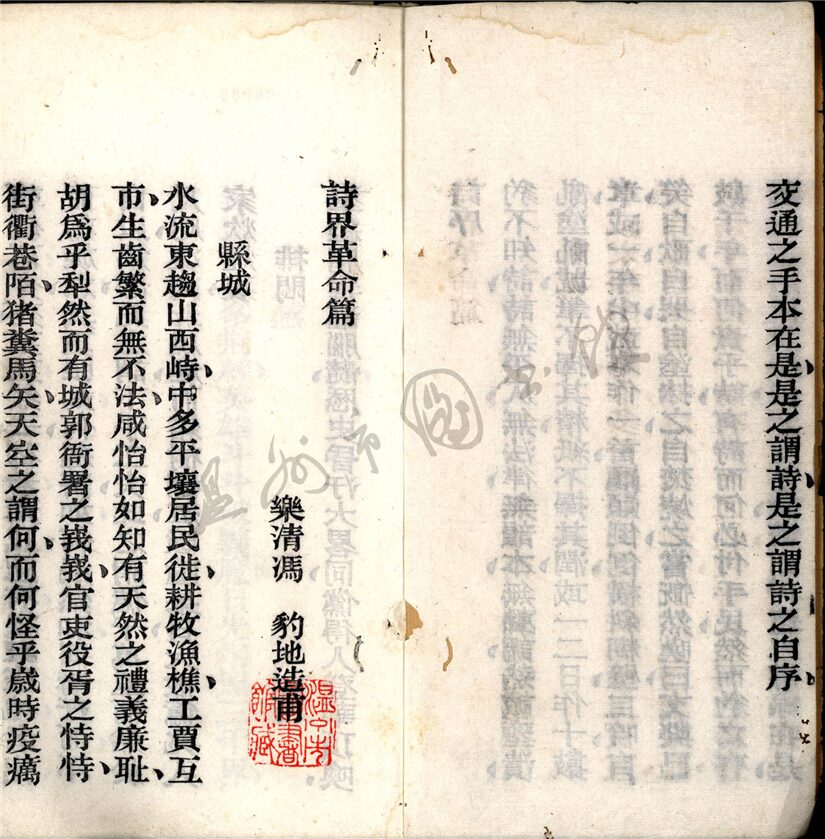 交通之手本在是是之謂詩是之謂詩之自序
詩界革命篇
樂清馮 豹地造甫
縣城
水流東趨山西峙中多平壤居民徙耕牧漁樵工賈互
市生齒繁而無不法咸怡怡如知有天然之禮義廉恥
胡為乎犁然而有城郭衙署之峩峩官吏役胥之恃恃
街衢巷陌猪糞馬矢天空之謂何而何怪乎歲時疫癘
温州市圖書館
温州市圖書館藏